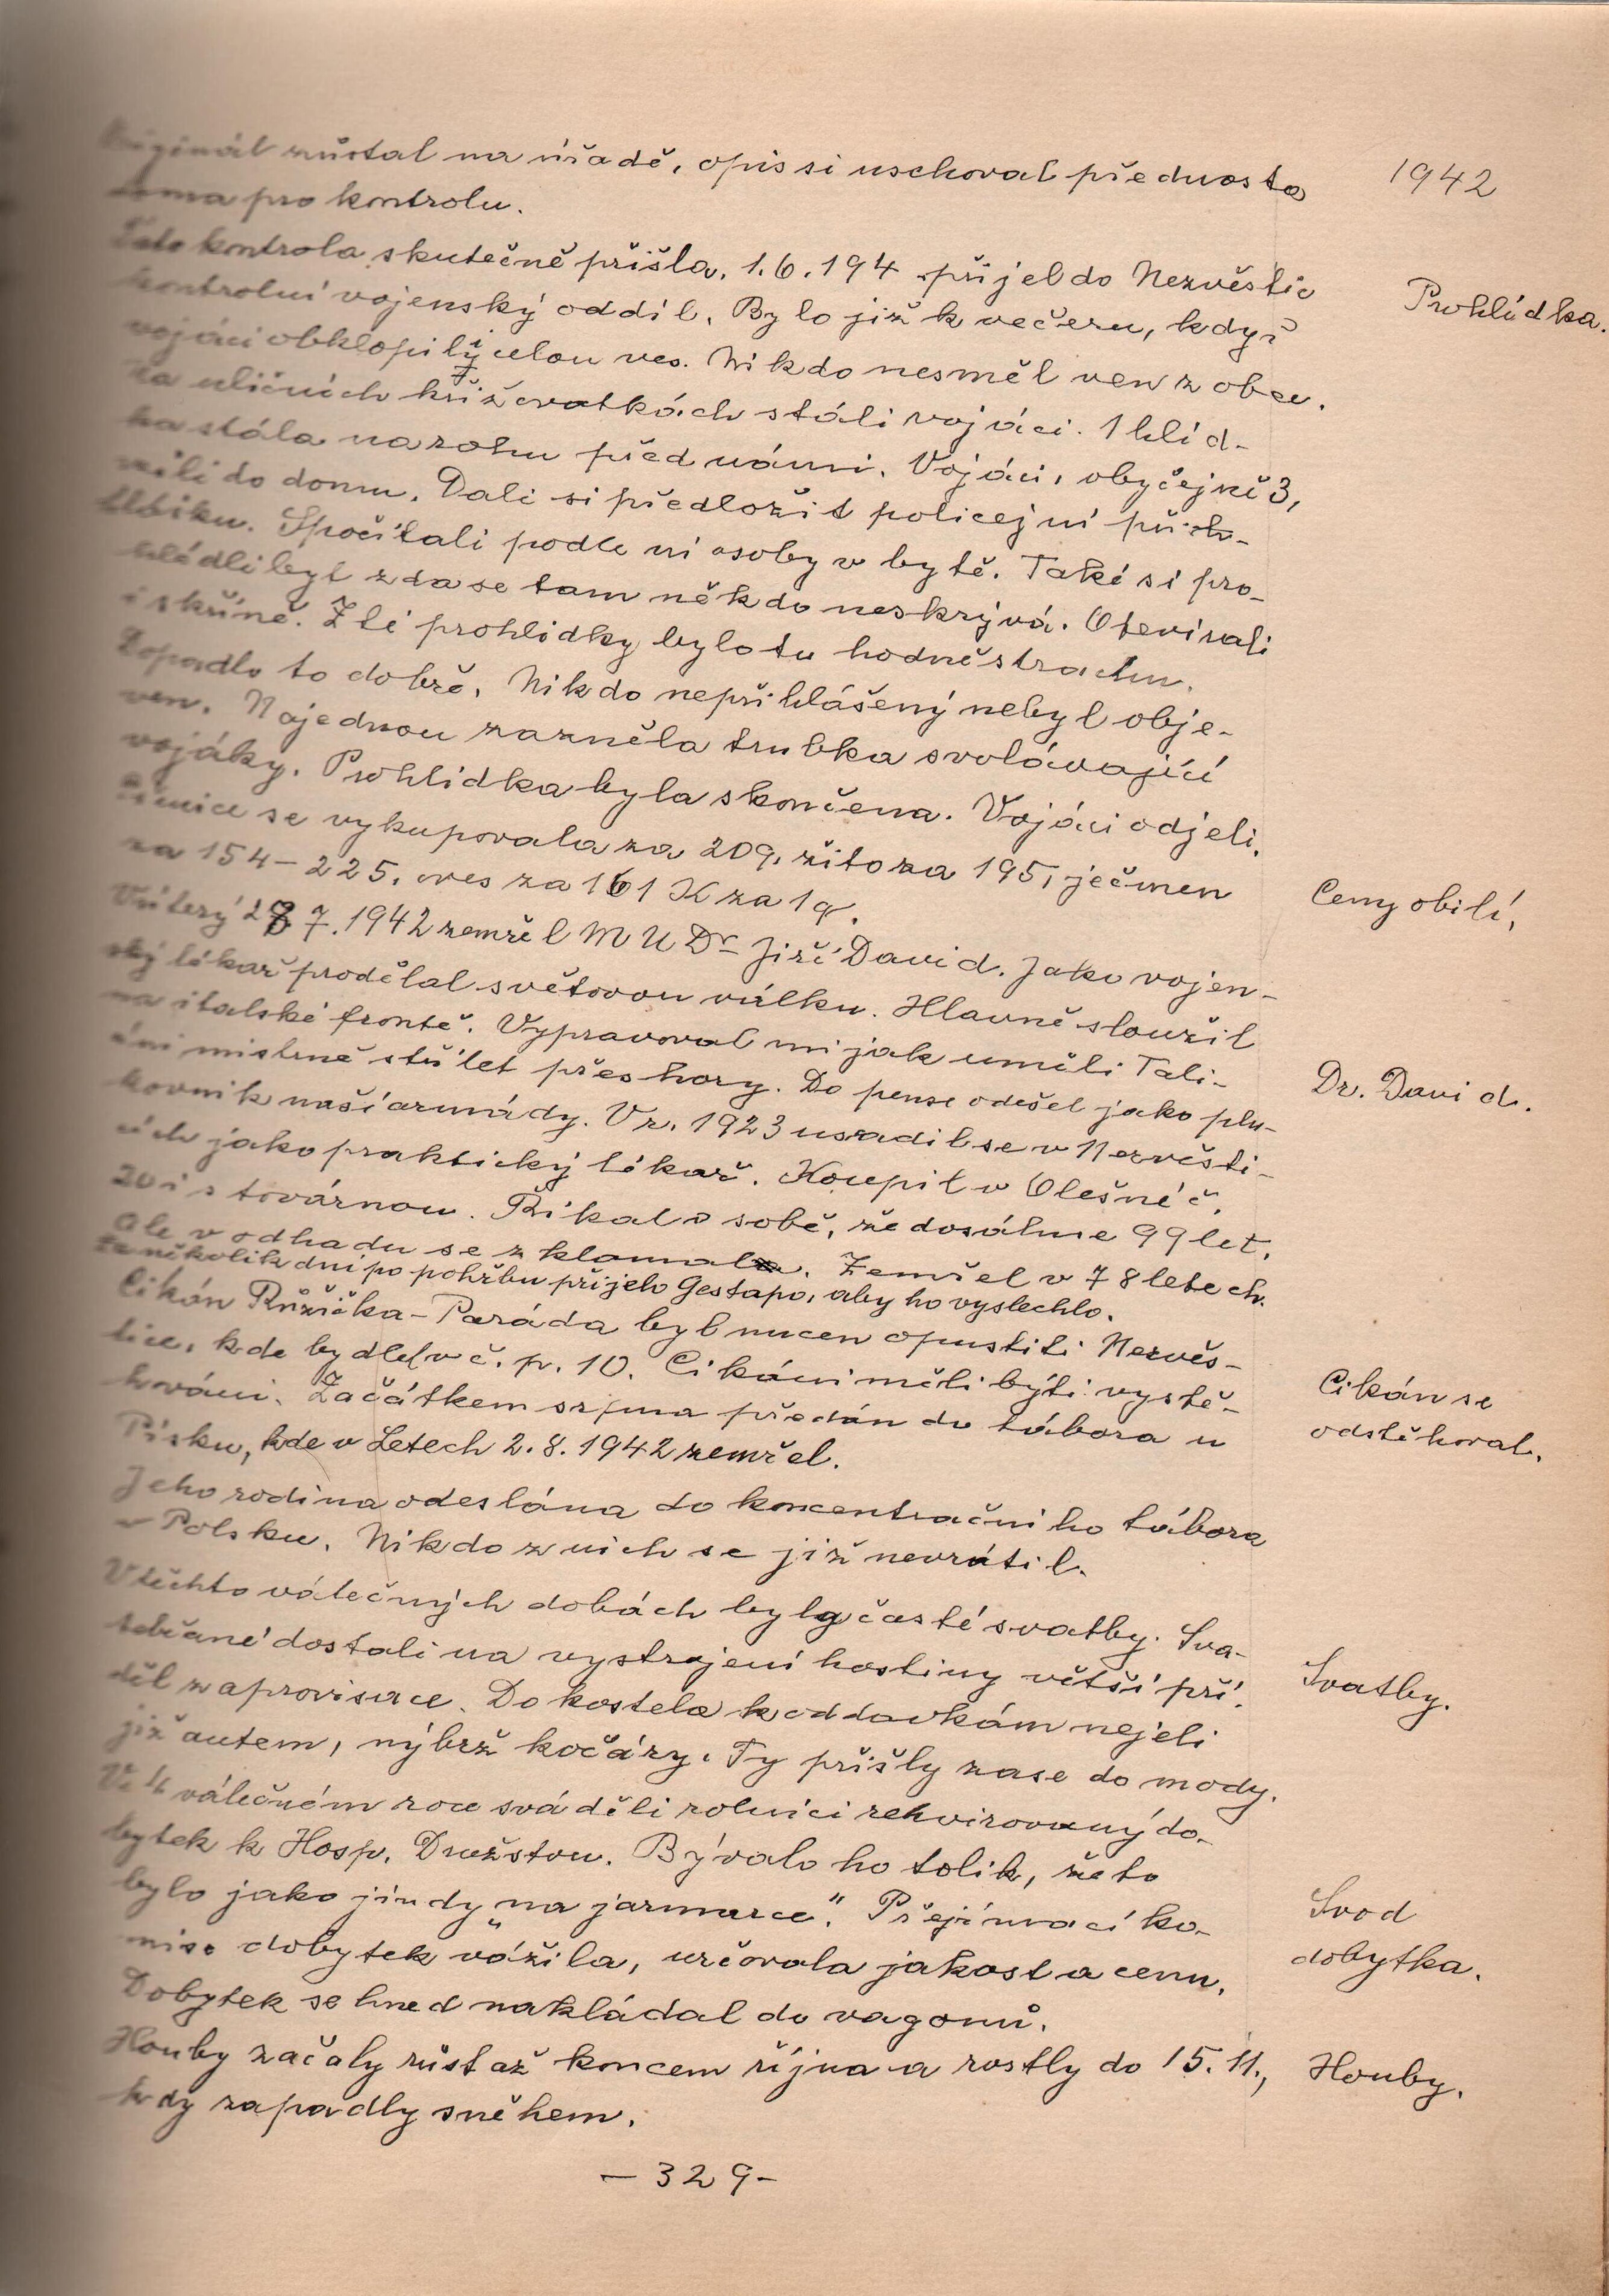 1942
originál zůstal na úřadě, opis si uschoval přednosta
doma pro kontrolu.
Prohlídka.
Tato kontrola skutečně přišla. 1.6.194 přijel do Nezvěstic
kontrolní vojenský oddíl. Bylo již k večeru, když
vojáci obklopili celou ves. Nikdo nesměl ven z obce.
Na uličních křižovatkách stáli vojáci. 1 hlíd-
ka stála na rohu před námi. Vojáci, obyčejně 3,
do domu. Dali si předložit policejní při-
hlášku. Spočítali podle ní osoby v bytě. Také si pro-
hlédli byt zda se tam někdo neskrývá. Otevírali
i skříně. Z té prohlídky bylo tu hodně strachu.
Dopadlo to dobře. Nikdo nepřihlášený nebyl obje-
ven. Najednou zazněla trubka svolávající
vojáky. Prohlídka byla skončena. Vojáci odjeli.
Ceny obilí.
Pšenice se vykupovala za 209, žito za 195, ječmen
za 154-225, oves za 161 K za 1 q.
V úterý 28 7. 1942 zemřel MUDr Jiří David. Jako vojen-
ský lékař prodělal světovou válku. Hlavně sloužil
na italské frontě. Vypravoval mi jak uměli Tali-
áni mistrně střílet přes hory. Do pense odešel jako plu-
Dr. David.
kovník naší armády. V r. 1923 usadil se v Nezvěsti-
cích jako praktický lékař. Koupil v Olešné č.
20 i s továrnou. Říkal o sobě, že dosáhne 99 let.
Ale v odhadu se zklamal. Zemřel v 78 letech.
Za několik dní po pohřbu přijelo Gestapo, aby ho vyslechlo.
Cikán Růžička-Paráda byl nucen opustiti Nezvěs-
tice, kde bydlel v č. p. 10. Cikáni měli býti vystě-
Cikán se
odstěhoval.
hováni. Začátkem srpna předán do tábora u
Písku, kde v Letech 2.8.1942 zemřel.
Jeho rodina odeslána do koncentračního tábora
v Polsku. Nikdo z nich se již nevrátil.
V těchto válečných dobách byly časté svatby. Sva-
Svatby.
tebčané dostali na vystrojení hostiny větší pří-
děl z aprovisace. Do kostela k oddavkám nejeli
již autem, nýbrž kočáry. Ty přišly zase do mody.
V 4 válečném roce sváděli rolníci rekvirovaný do-
bytek k Hosp. Družstvu. Bývalo ho tolik, že to
Svod
dobytka.
bylo jako jindy „na jarmarce". Přejímací ko-
mise dobytek vážila, určovala jakost a cenu.
Dobytek se hned nakládal do vagonů.
Houby začaly růst až koncem října a rostly do 15.11.,
Houby.
kdy zapadly sněhem.
- 329 -